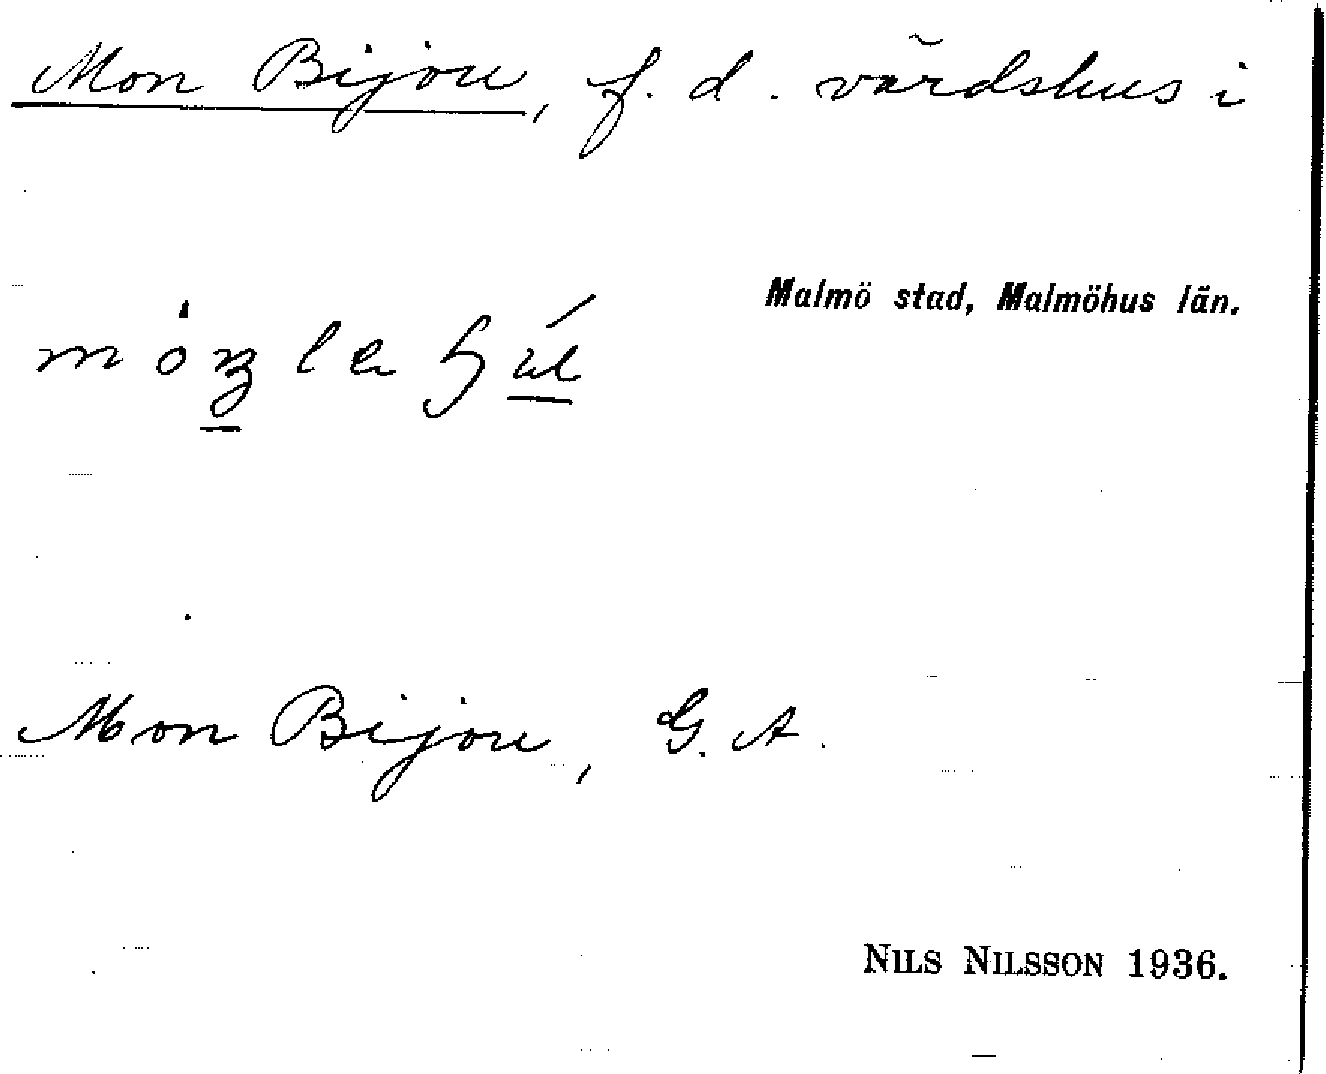 Mon Bijou, f. d. värdshus i
Malmö stad, Malmöhus län.
Mon Bijou, G. A.
NILS NILSSON 1936.